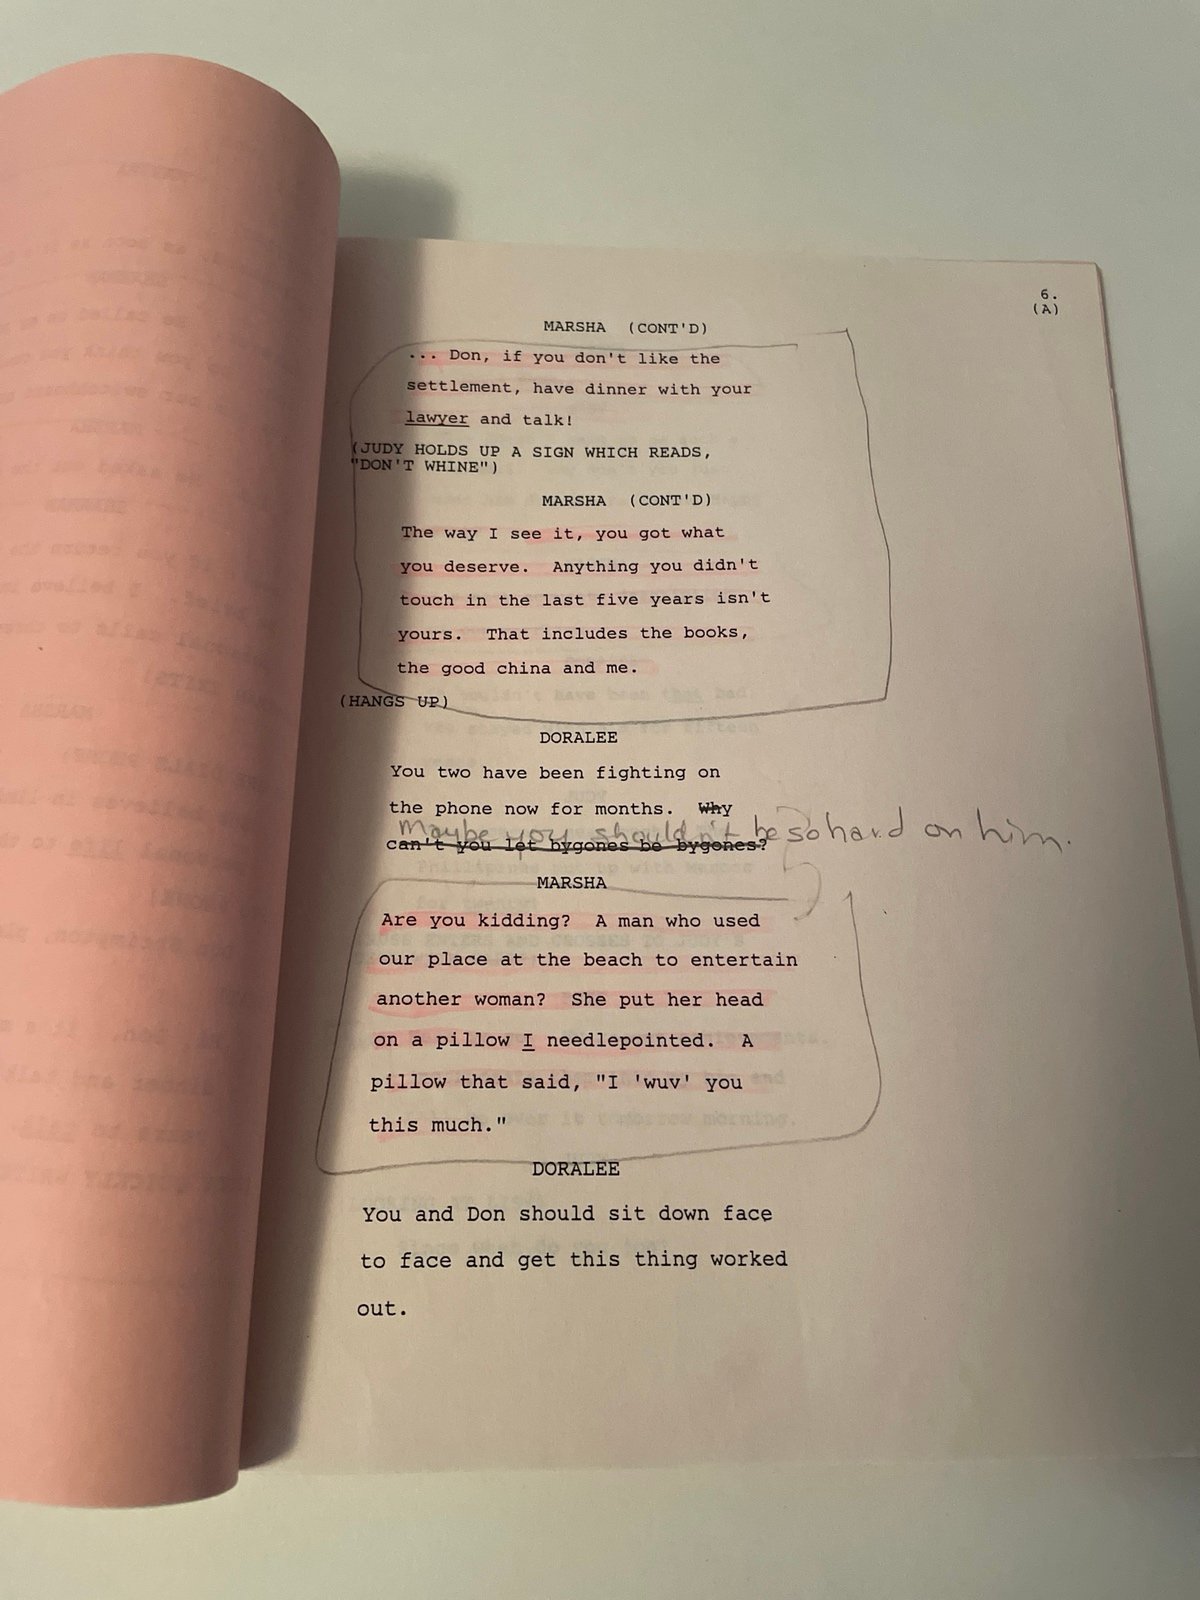 6.
(A)
MARSHA (CONT'D)
... Don, if you don't like the
settlement, have dinner with your
lawyer and talk!
(JUDY HOLDS UP A SIGN WHICH READS,
"DON'T WHINE")
MARSHA (CONT'D)
The way I see it, you got what
you deserve. Anything you didn't
touch in the last five years isn't
yours. That includes the books,
the good china and me.
(HANGS UP)
DORALEE
You two have been fighting on
the phone now for months. Why
maybe you shouldn't be so hard on him.
can't you let bygones be bygones?
MARSHA
Are you kidding? A man who used
our place at the beach to entertain
another woman? She put her head
on a pillow I needlepointed. A
pillow that said, "I 'wuv' you
this much."
DORALEE
You and Don should sit down face
to face and get this thing worked
out.